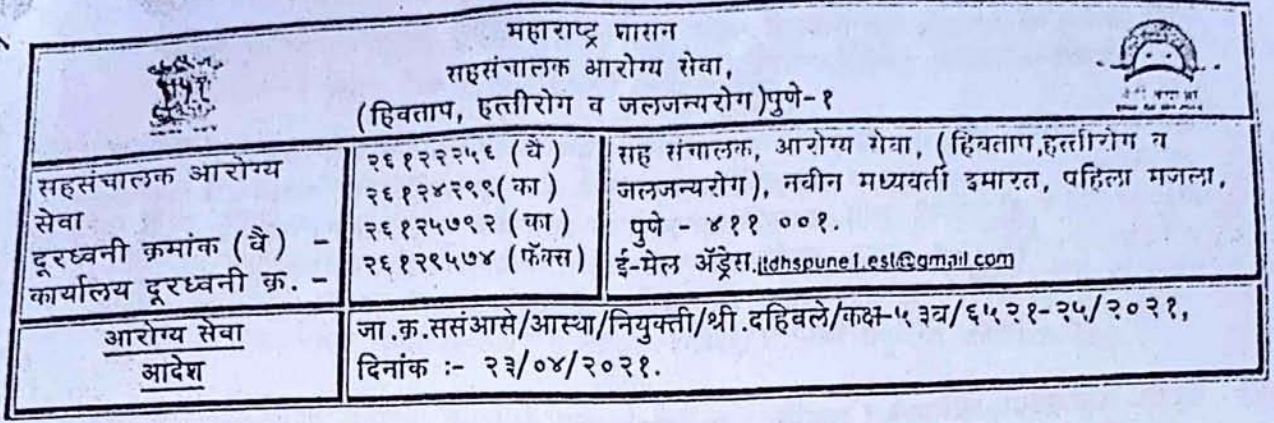 महाराष्ट्र शासन
सहसंचालक आरोग्य सेवा,
(हिवताप, हत्तीरोग व जलजन्यरोग)पुणे-१
सहसंचालक आरोग्य
सेवा
दूरध्वनी क्रमांक (वै) -
कार्यालय दूरध्वनी क्र. -
२६१२२२५६ (वै)
२६१२४२९९(का)
२६१२५७९२ (का)
२६१२९५७४ (फॅक्स)
सह संचालक, आरोग्य सेवा, (हिवताप,हत्तीरोग व
जलजन्यरोग), नवीन मध्यवर्ती इमारत, पहिला मजला,
पुणे - ४११ ००१.
ई-मेल ॲड्रेस.jtdhspune1.esl@gmail.com
आरोग्य सेवा
आदेश
जा.क्र.ससंआसे/आस्था/नियुक्ती/श्री.दहिवले/कक्ष-५३व/६५२१-२५/२०२१,
दिनांक :- २३/०४/२०२१.